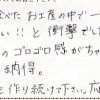 べた お土産の中で一
い!!と 衝撃で し
のゴロゴロ感がちゃ
納得。
を作り続けて下さい。応